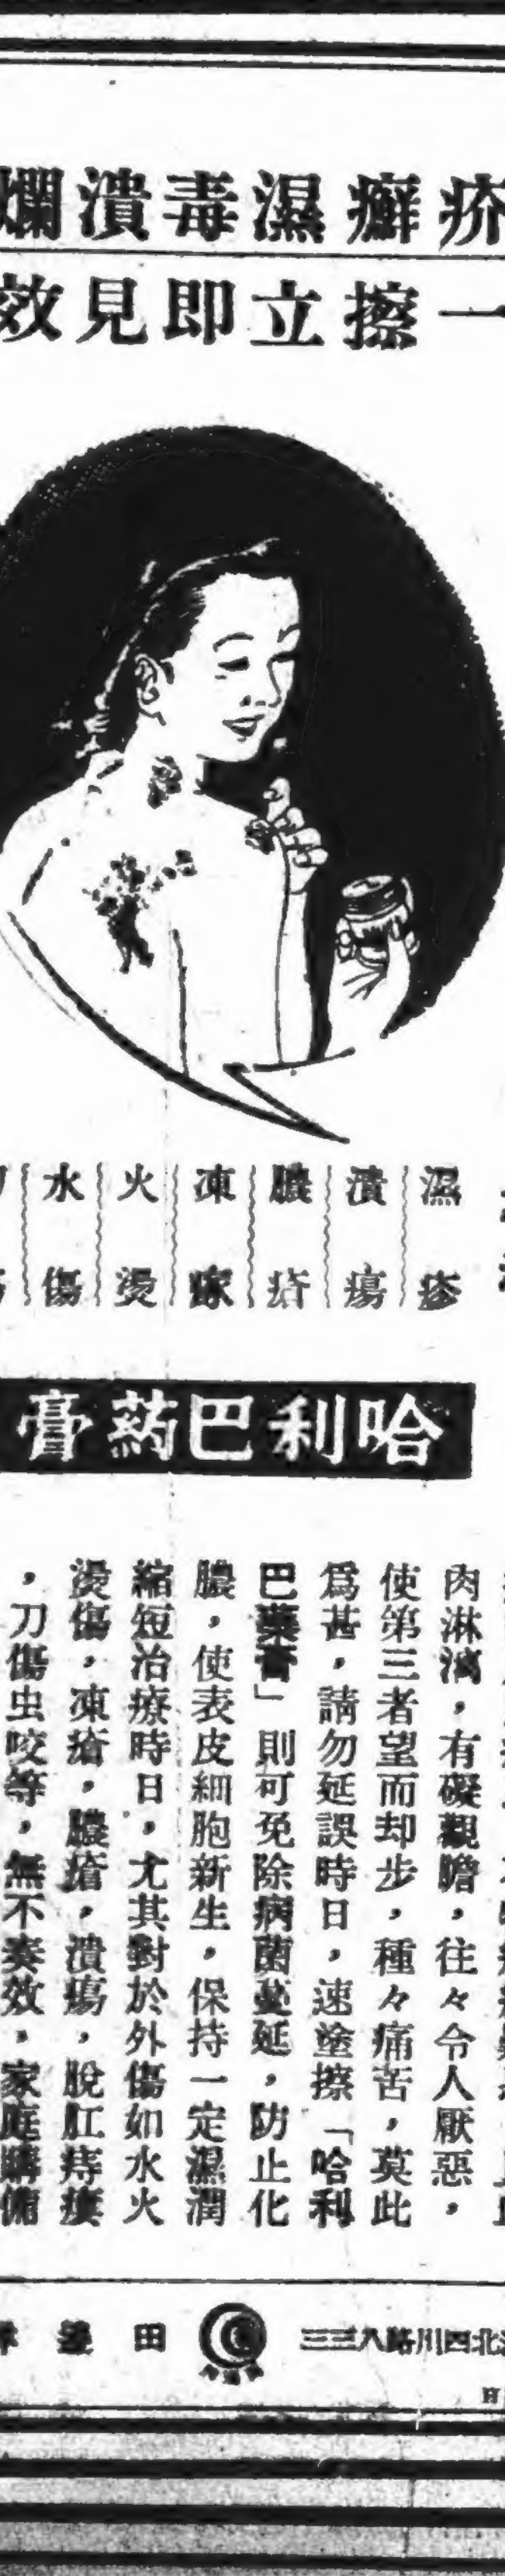 疥癬濕毒潰爛
一擦立即見效
濕疹
潰瘍
膿瘡
凍瘃
火燙
水傷
哈利巴藥膏
肉淋漓，有礙觀瞻，往々令人厭惡，
使第三者望而却步，種々痛苦，莫此
爲甚，請勿延誤時日，速塗擦「哈利
巴藥膏」則可免除病菌蔓延，防止化
膿，使表皮細胞新生，保持一定濕潤
縮短治療時日，尤其對於外傷如水火
燙傷，凍瘡，膿瘡，潰瘍，脫肛痔瘻
，刀傷虫咬等，無不奏效，家庭購備
北四川路八三三
田